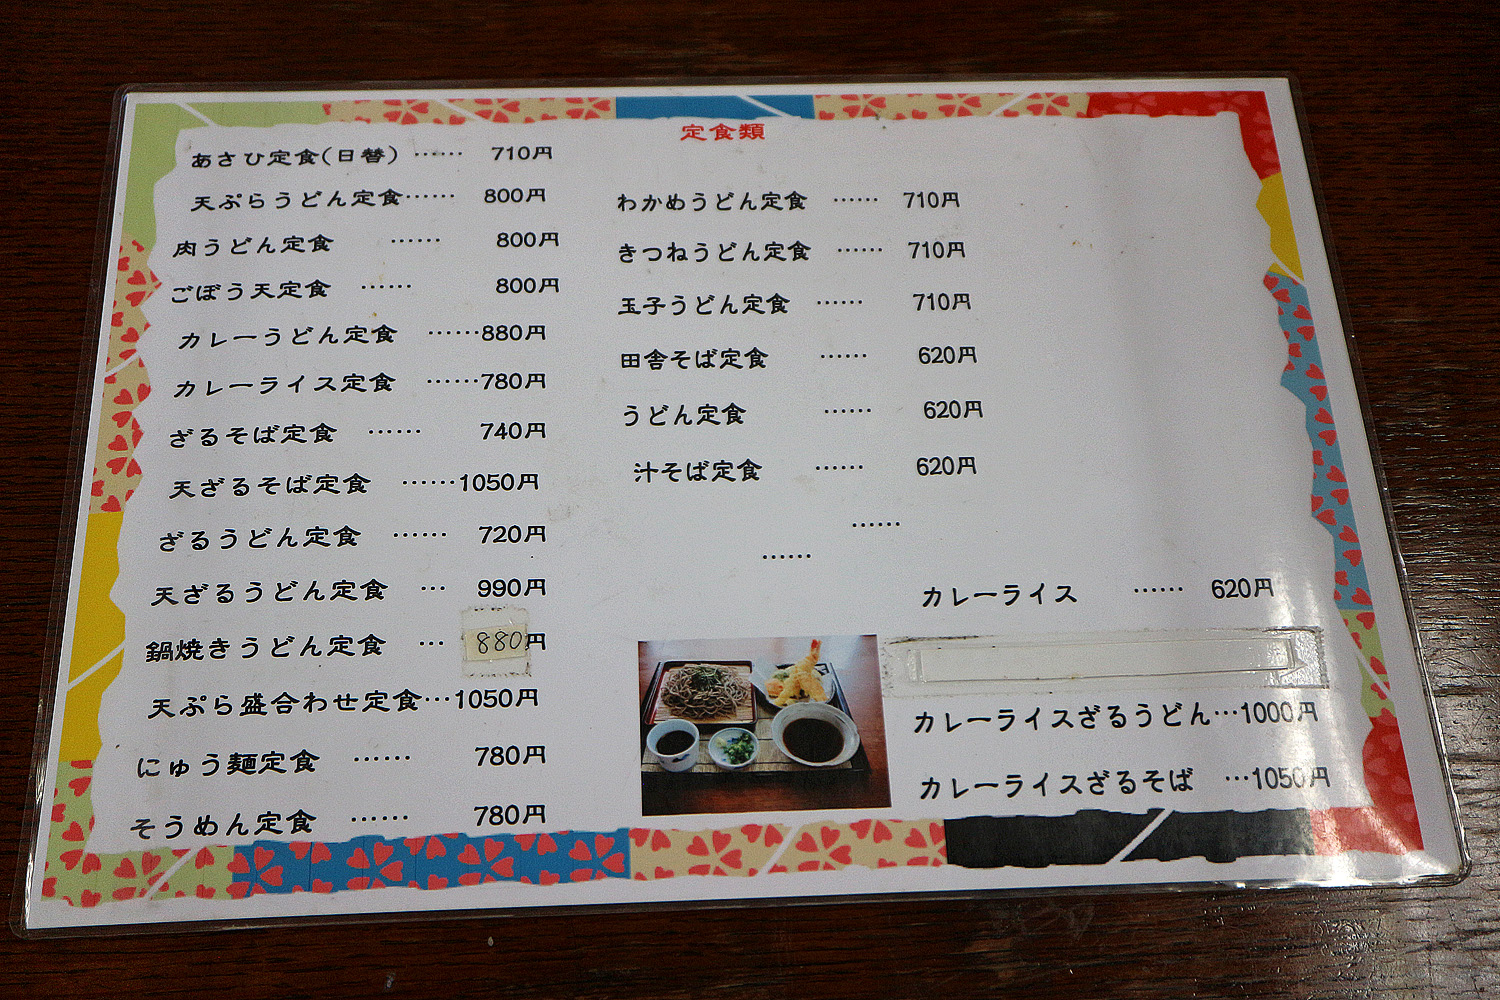 定食類
あさひ定食(日替) …… 710円
天ぷらうどん定食…… 800円
肉うどん定食 …… 800円
ごぼう天定食 …… 800円
カレーうどん定食 ……880円
カレーライス定食 ……780円
ざるそば定食 …… 740円
天ざるそば定食 ……1050円
ざるうどん定食 …… 720円
天ざるうどん定食 … 990円
鍋焼きうどん定食 … 880円
天ぷら盛合わせ定食…1050円
にゅう麺定食 …… 780円
そうめん定食 …… 780円
わかめうどん定食 …… 710円
きつねうどん定食 …… 710円
玉子うどん定食 …… 710円
田舎そば定食 …… 620円
うどん定食 …… 620円
汁そば定食 …… 620円
……
……
カレーライス …… 620円
カレーライスざるうどん…1000円
カレーライスざるそば …1050円